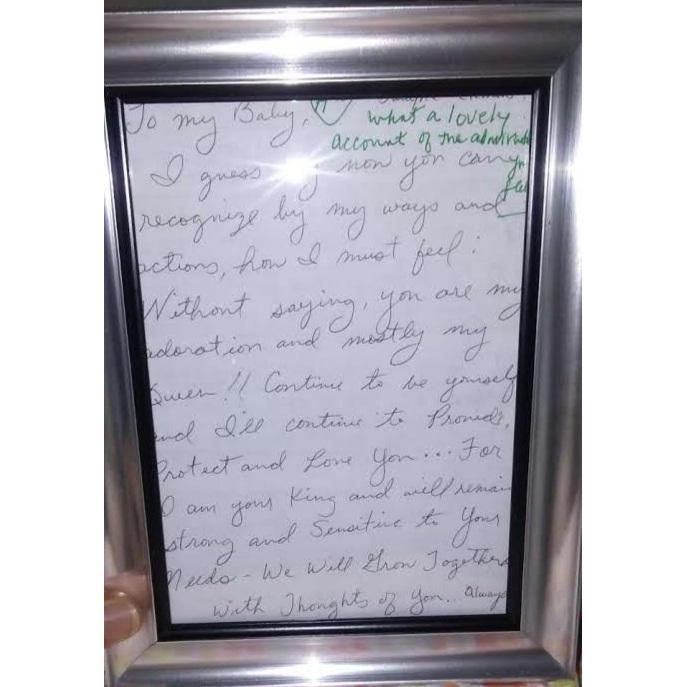 To my Baby,
what a lovely
account of the
I guess by now you can
recognize by my ways and
actions, how I must feel:
Without saying, you are my
adoration and mostly my
Queen!! Continue to be yourself
and I'll continue to Provide,
Protect and Love You... For
I am your King and will remain
strong and Sensitive to Your
Needs - We Will Grow Together
With Thoughts of You.. Always